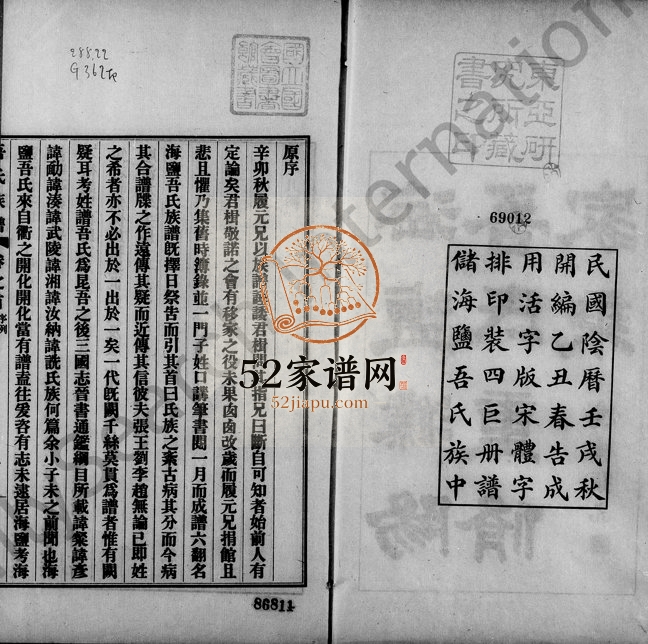 東亞研
究所藏
書之印
69012
民國陰曆壬戌秋
開編乙丑春告成
用活字版宋體字
排印裝四巨册譜
儲海鹽吾氏族中
288.22
原序
辛卯秋履元兄以族譜
定論矣君楫敬諾之會有移家之役未果卤卤改歲而履元兄捐館且
悲且懼乃集舊時簿錄並一門子姓口講筆書閱一月而成譜六翻名
海鹽吾氏族譜旣擇日祭告而引其首曰氏族之紊古病其分而今病
其合譜牒之作遠傳其疑而近傳其信彼夫張王劉李趙無論已卽姓
之希者亦不必出於一出於一矣一代旣闕千絲莫貫爲譜者惟有闕
疑耳考姓譜吾氏爲昆吾之後三國志晉書通鑑綱目所載諱粲諱彥
諱勔諱湊諱武陵諱湘諱汝納諱詵氏族何篇余小子未之前聞也海
鹽吾氏來自衢之開化開化當有譜蓋往爰咨有志未逮居海鹽考海
86811
52家谱网
52jiapu.com